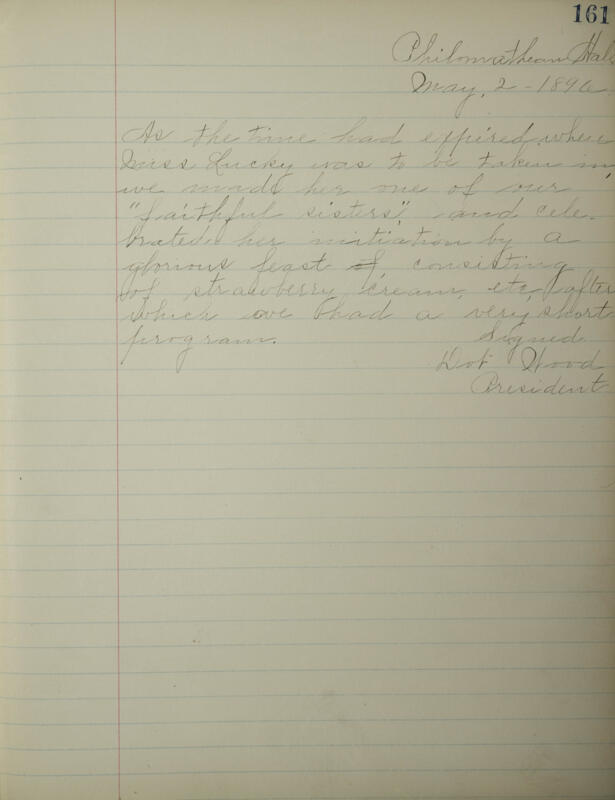 161
Philomathean Hall
May, 2 - 1896
As the time had expired when
Miss Lucky was to be taken in,
we made her one of our
"faithful sisters", and cele-
brated her initiation by a
glorious feast of, consisting
of strawberry, cream, etc, after
which we had a very short
program. Signed
Dot Wood
President